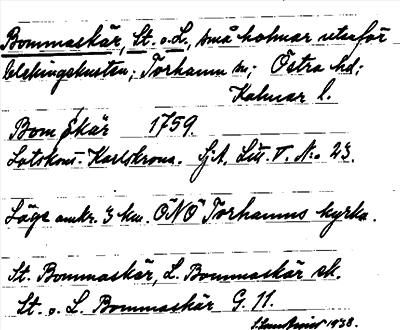 Bommaskär, St. o. L., små holmar utanför
blekingekusten; Torhamn sn; Östra hd;
Kalmar l.
Bom skär 1759.
Lotskont. Karlskrona. Sj.A. Litt. T. No 23.
Läge omkr. 3 km. ÖNÖ Torhamns kyrka.
St. Bommaskär, L. Bommaskär sk.
St. o. L. Bommaskär G. 11.
1938.